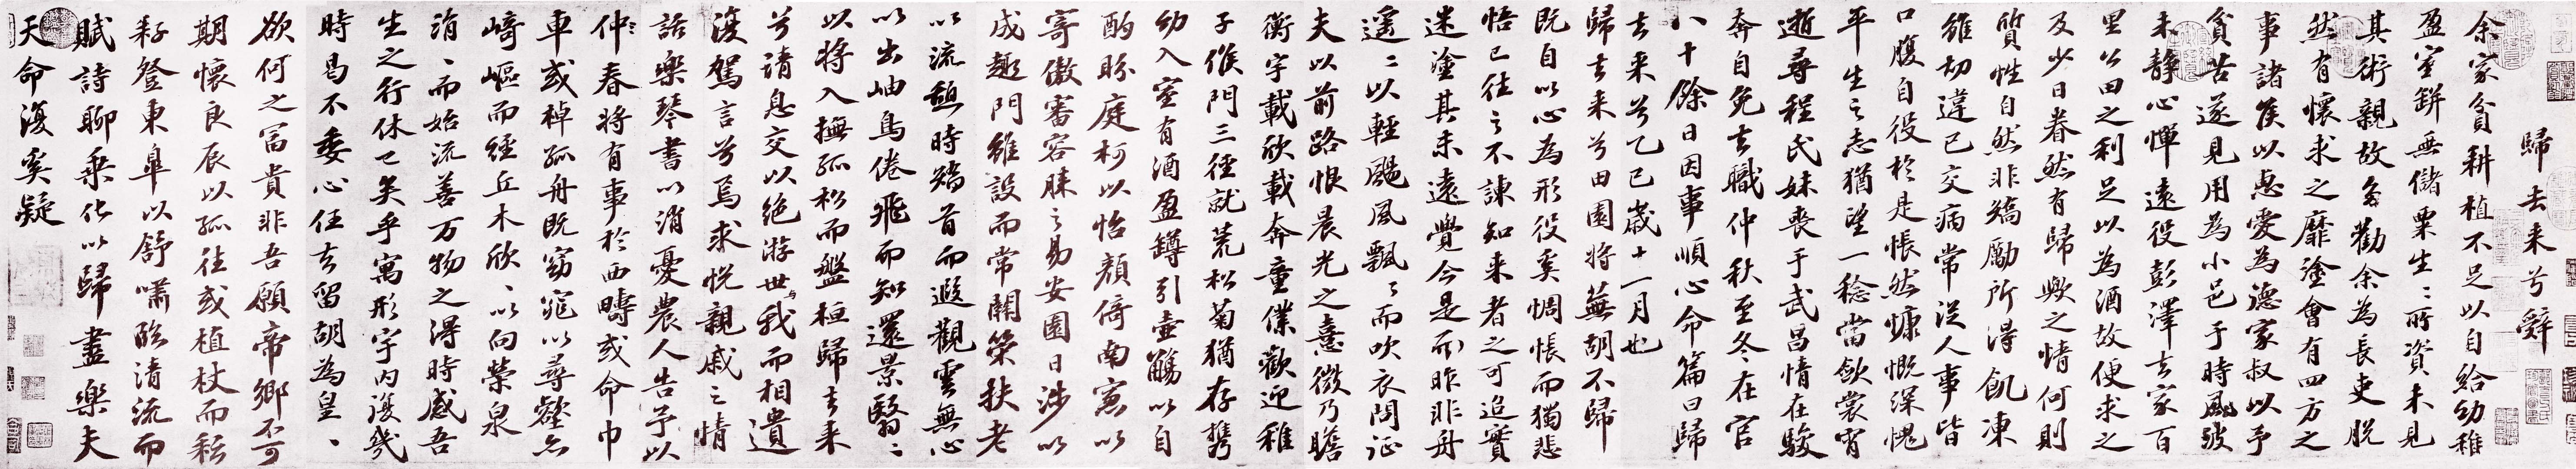 歸去来兮辭
余家貧耕植不足以自給幼稚
盈室缾無儲粟生〻所資未見
其術親故多勸余為長吏脫
然有懷求之靡塗會有四方之
事諸侯以惠愛為德家叔以予
貧苦遂見用為小邑于時風波
未静心憚遠役彭澤去家百
里公田之利足以為酒故便求之
及少日眷然有歸歟之情何則
質性自然非矯勵所得飢凍
雖切違己交病常從人事皆
口腹自役於是悵然慷慨深愧
平生之志猶望一稔當斂裳宵
逝尋程氏妹喪于武昌情在駿
奔自免去職仲秋至冬在官
八十餘日因事順心命篇曰歸
去来兮乙巳歲十一月也
歸去来兮田園將蕪胡不歸
既自以心為形役奚惆悵而獨悲
悟已往之不諫知来者之可追實
迷塗其未遠覺今是而昨非舟
遥〻以輕颺風飄〻而吹衣問征
夫以前路恨晨光之熹微乃瞻
衡宇載欣載奔童僕歡迎稚
子候門三徑就荒松菊猶存携
幼入室有酒盈罇引壺觴以自
酌眄庭柯以怡顏倚南窓以
寄傲審容膝之易安園日涉以
成趣門雖設而常關策扶老
以流憩時矯首而遐觀雲無心
以出岫鳥倦飛而知還景翳〻
以將入撫孤松而盤桓歸去来
兮請息交以絶游世與我而相遺
復駕言兮焉求悦親戚之情
話樂琴書以消憂農人告予以
仲春將有事於西疇或命巾
車或棹孤舟既窈窕以尋壑亦
崎嶇而經丘木欣〻以向榮泉
涓〻而始流善万物之得時感吾
生之行休已矣乎寓形宇内復幾
時曷不委心任去留胡為皇〻
欲何之冨貴非吾願帝鄉不可
期懷良辰以孤往或植杖而耘
耔登東皐以舒嘯臨清流而
賦詩聊乗化以歸盡樂夫
天命復奚疑